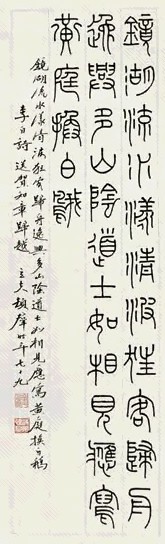 鏡湖流水漾清波狂客歸舟
逸興多山陰道士如相見應寫
黃庭換白鵝
鏡湖流水漾清波狂客歸舟逸興多山陰道士如相見應寫黃庭換白鵝
李白詩送賀知章歸越 時年七十九